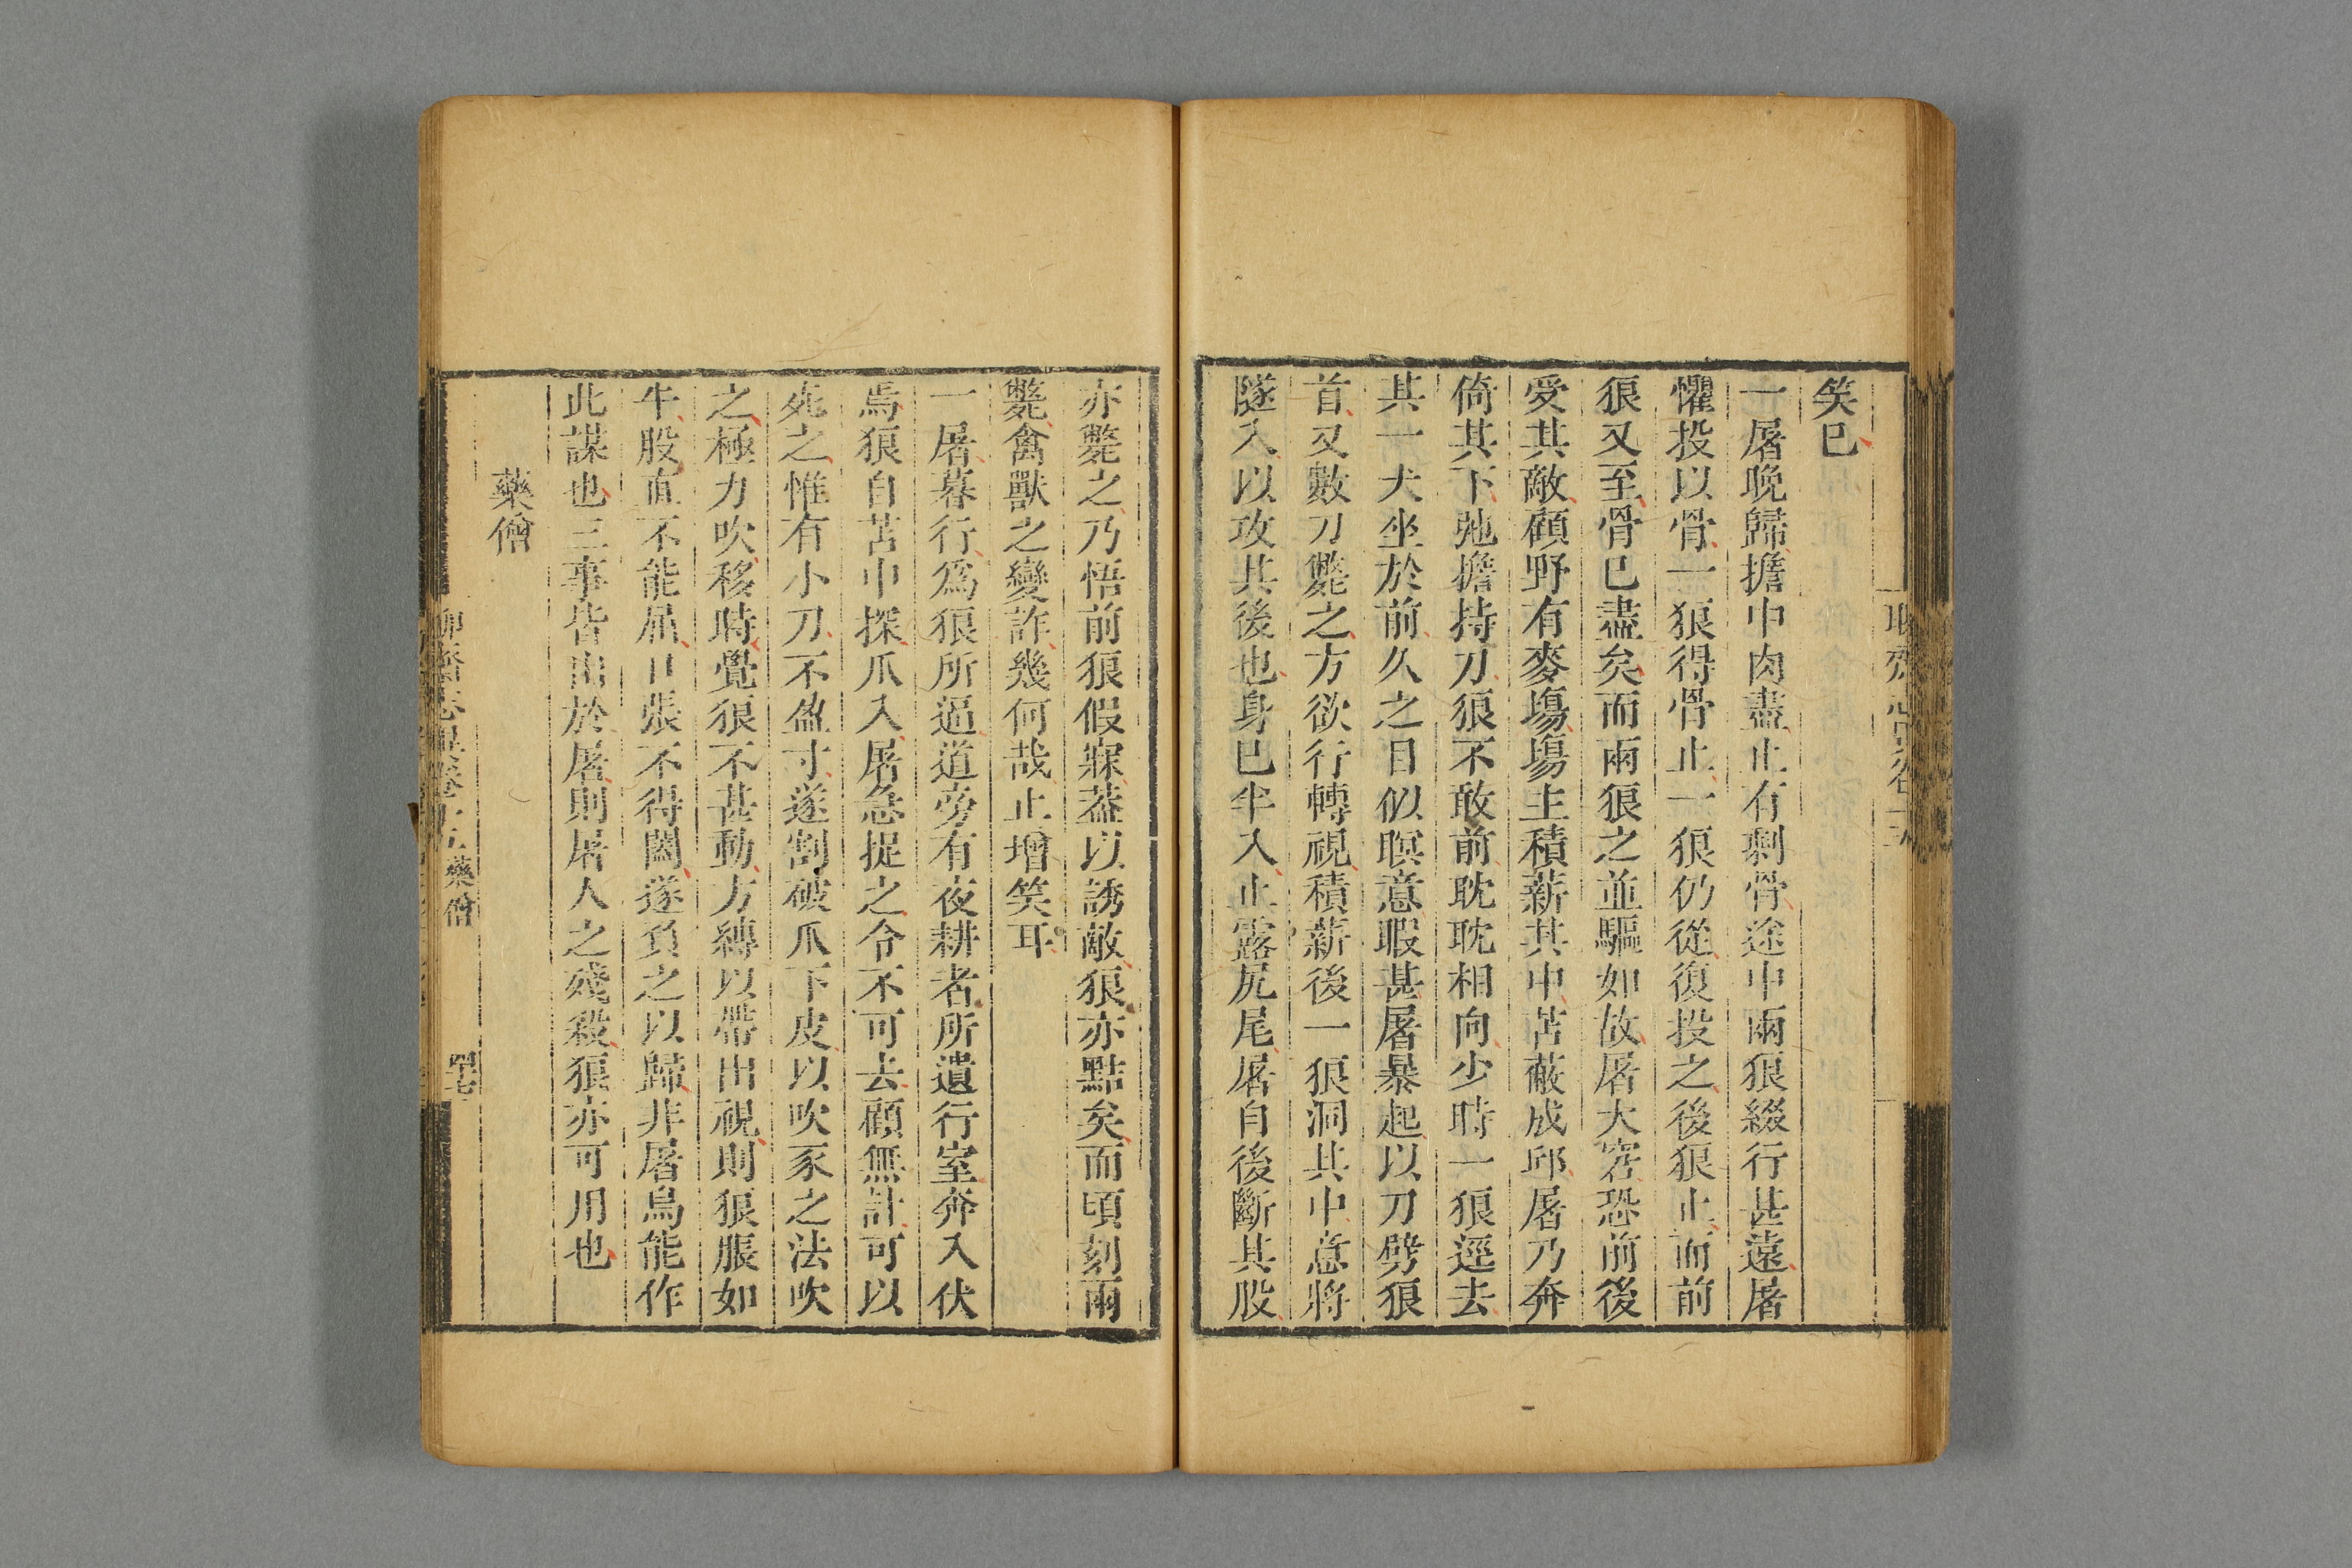 矣已
一屠晚歸擔中肉盡止有剩骨途中兩狼綴行甚遠屠
懼投以骨一狼得骨止一狼仍從復投之後狼止而前
狼又至骨已盡矣而兩狼之並驅如故屠大窘恐前後
受其敵顧野有麥場場主積薪其中苫蔽成邱屠乃奔
倚其下弛擔持刀狼不敢前耽耽相向少時一狼逕去
其一犬坐於前久之目似暝意暇甚屠暴起以刀劈狼
首又數刀斃之方欲行轉視積薪後一狼洞其中意將
隧入以攻其後也身已半入止露尻尾屠自後斷其股
亦斃之乃悟前狼假寐葢以誘敵狼亦黠矣而頃刻兩
斃禽獸之變詐幾何哉止增笑耳
一屠暮行爲狼所逼道旁有夜耕者所遺行室奔入伏
焉狼自苫中探爪入屠急捉之令不可去顧無計可以
死之惟有小刀不盈寸遂割破爪下皮以吹豕之法吹
之極力吹移時覺狼不甚動方縛以帶出視則狼脹如
牛股直不能屈口張不得闔遂負之以歸非屠烏能作
此謀也三事皆出於屠則屠人之殘殺狼亦可用也
藥僧
聊齋志異卷十五 藥僧